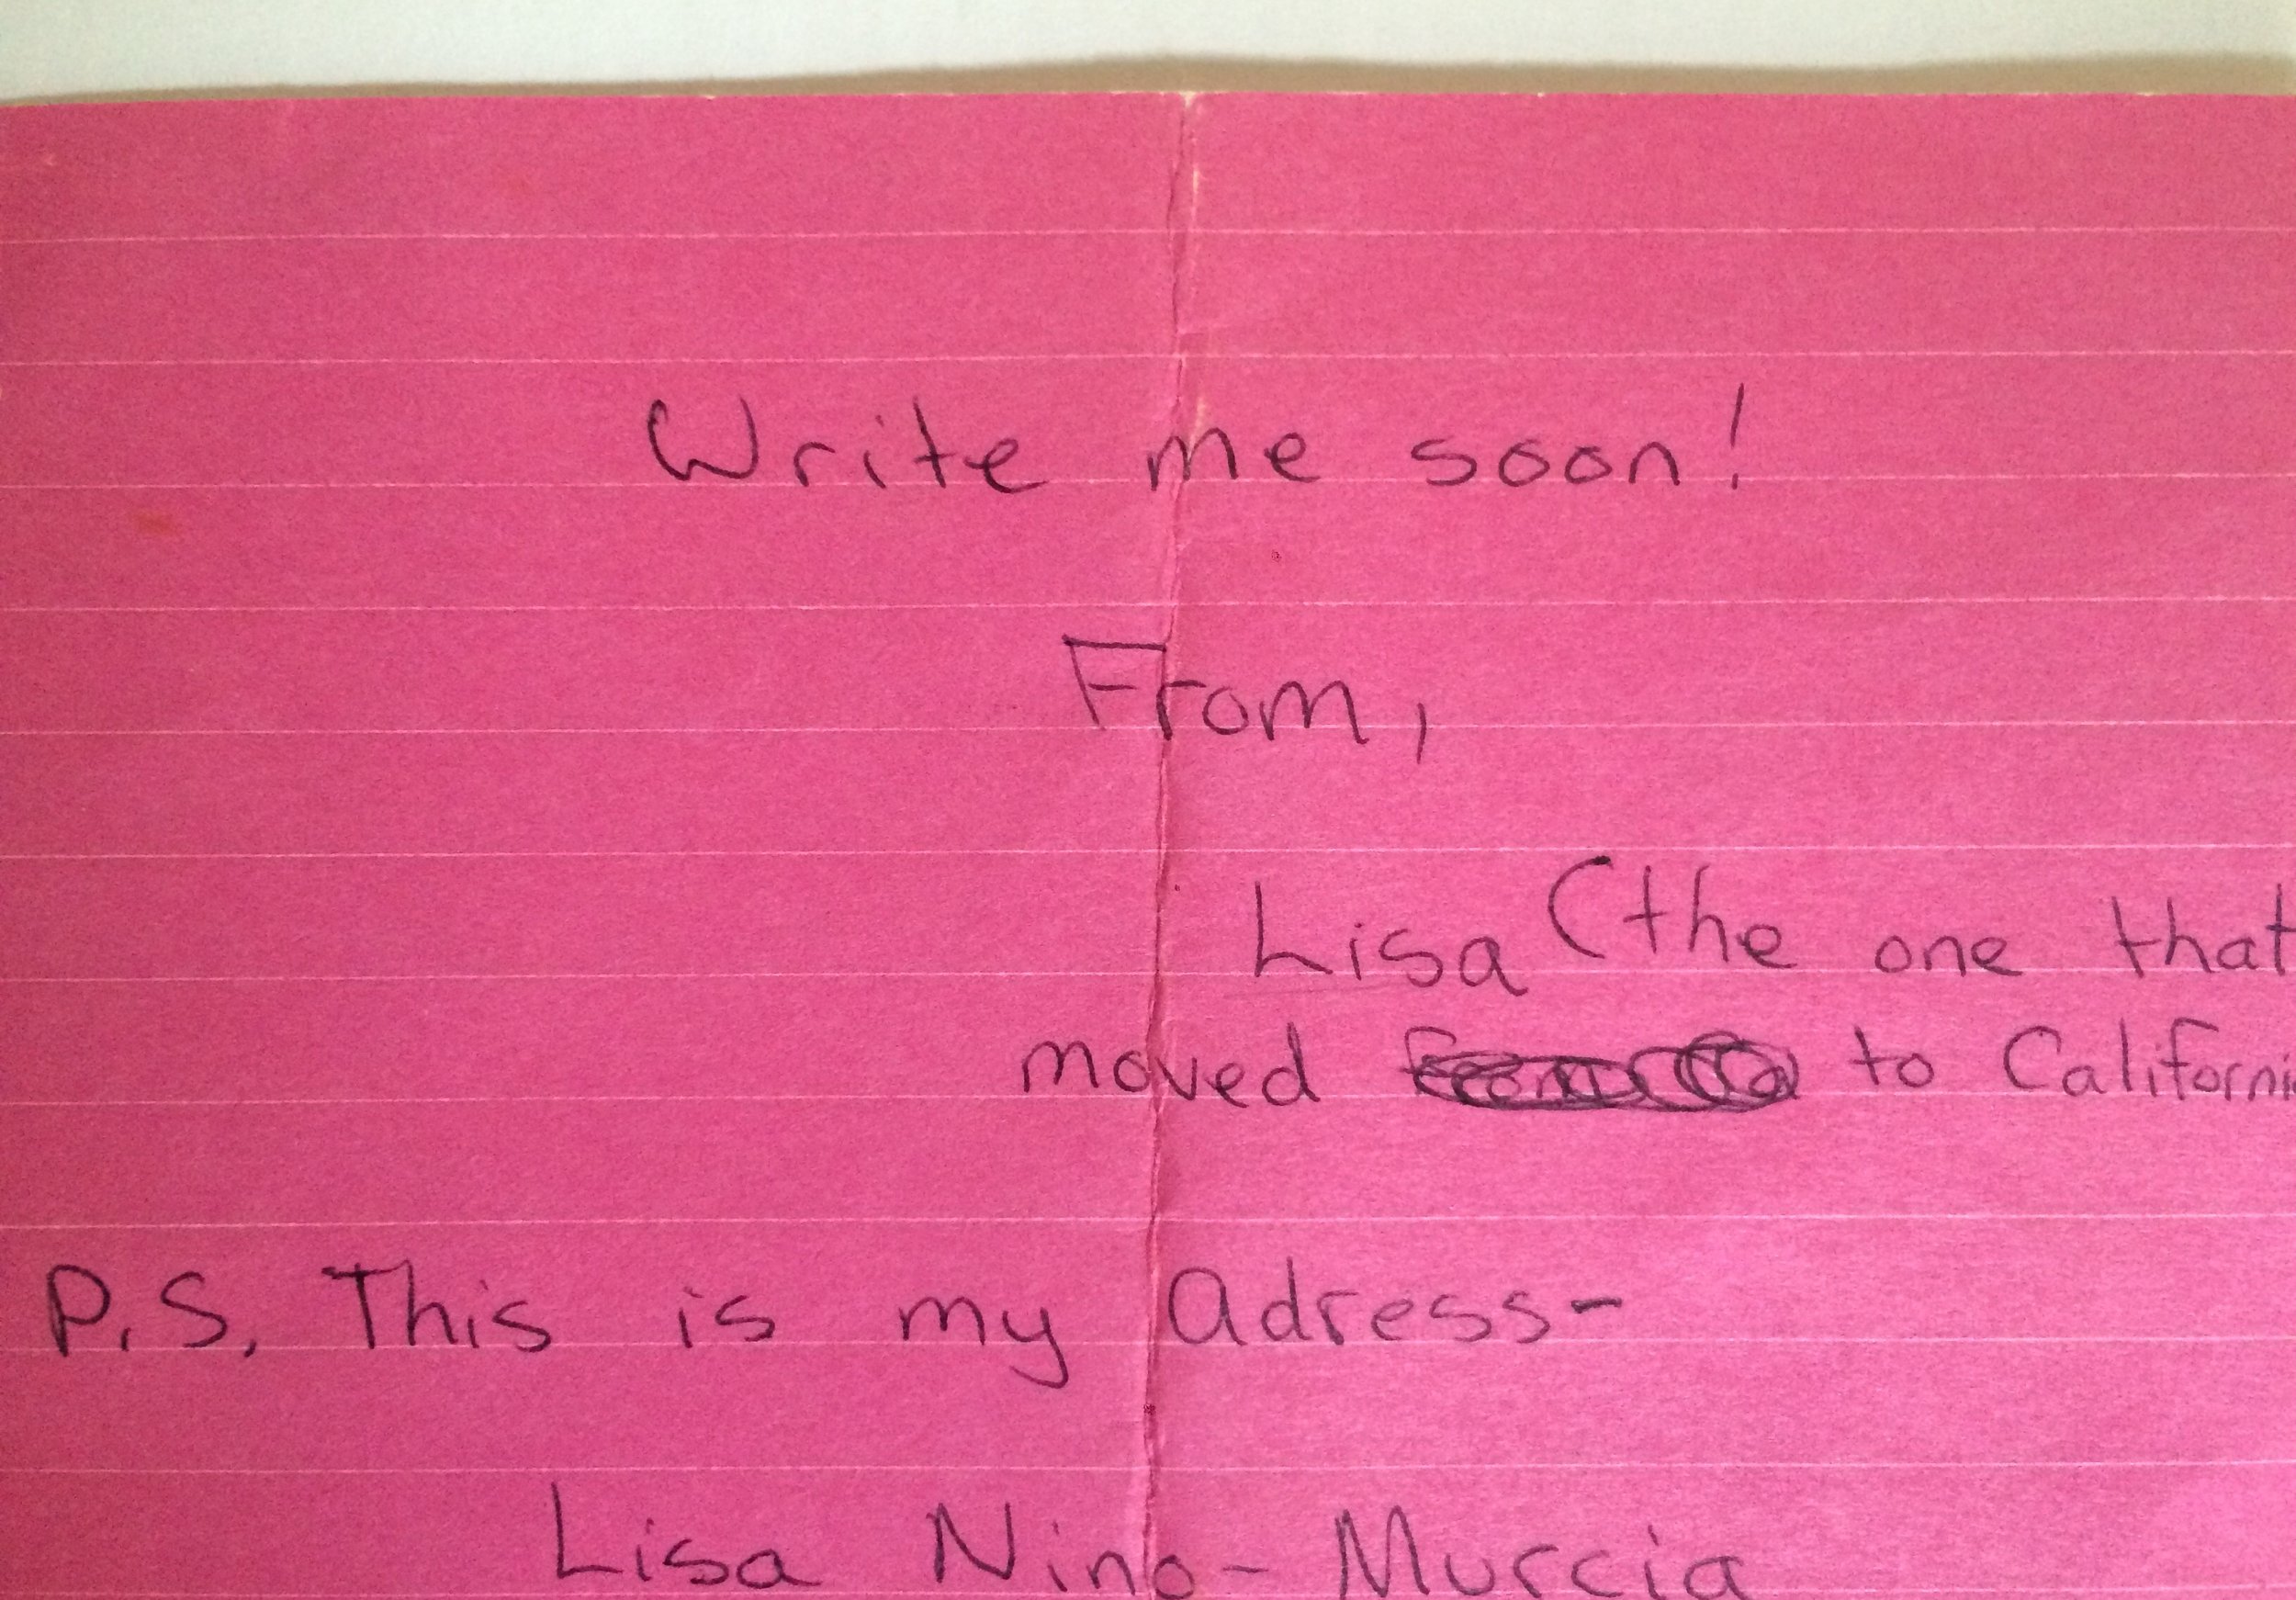 Write me soon!
From,
Lisa (the one that
moved to Californi
P.S. This is my adress-
Lisa Nino-Murcia